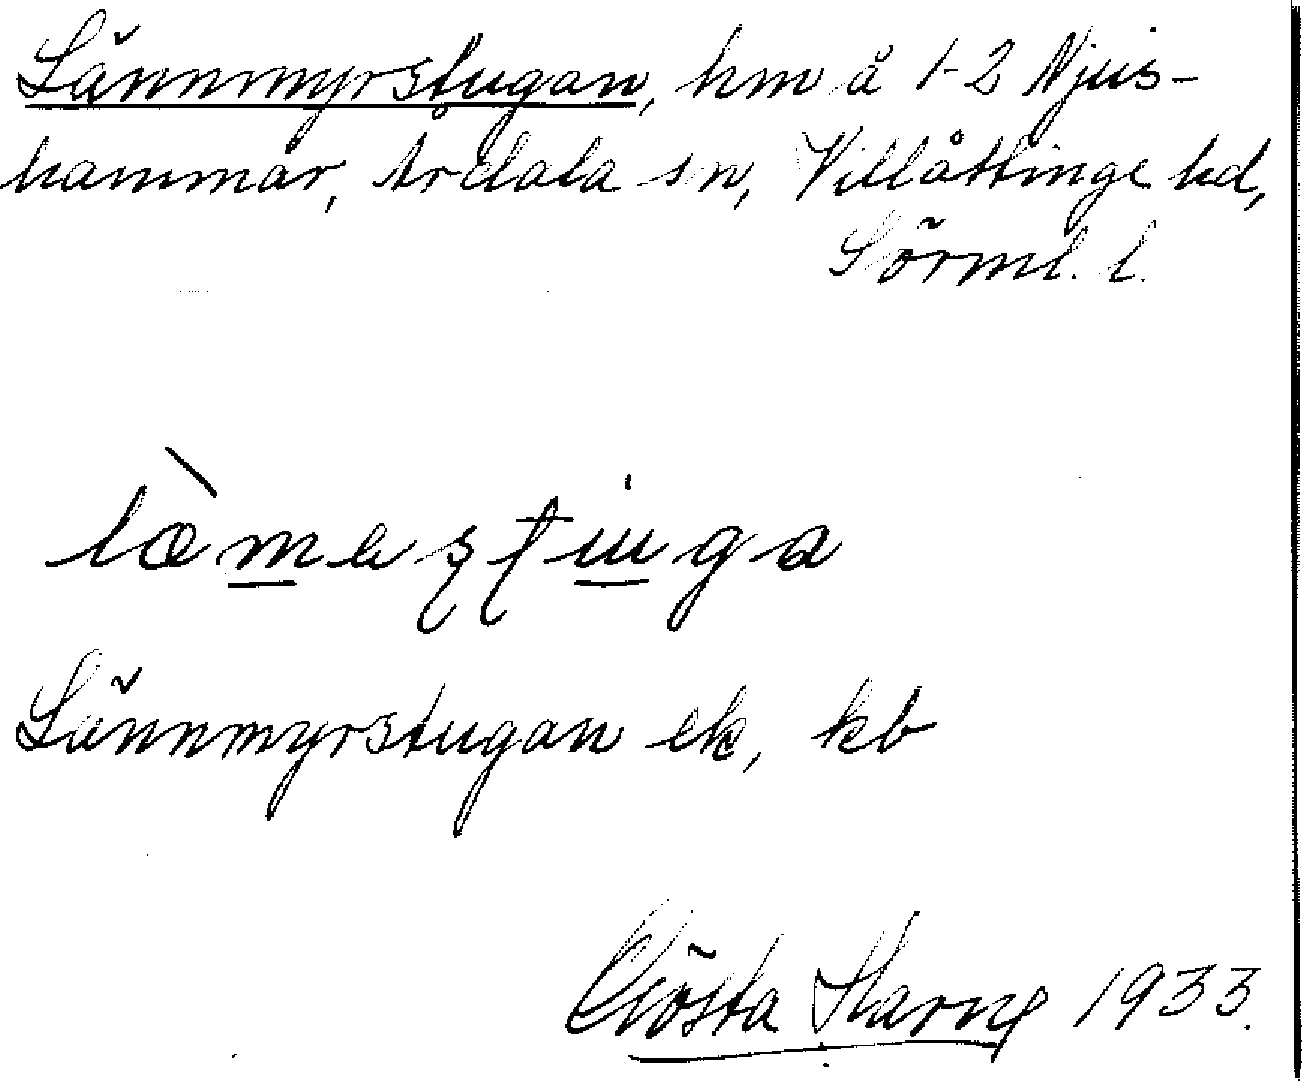 Lännmyrstugan, hm å 1-2 Njus-
hammar, Årdala sn, Villåttinge hd,
Sörml. l.
Lännmyrstugan ek, kb
Gösta 1933.